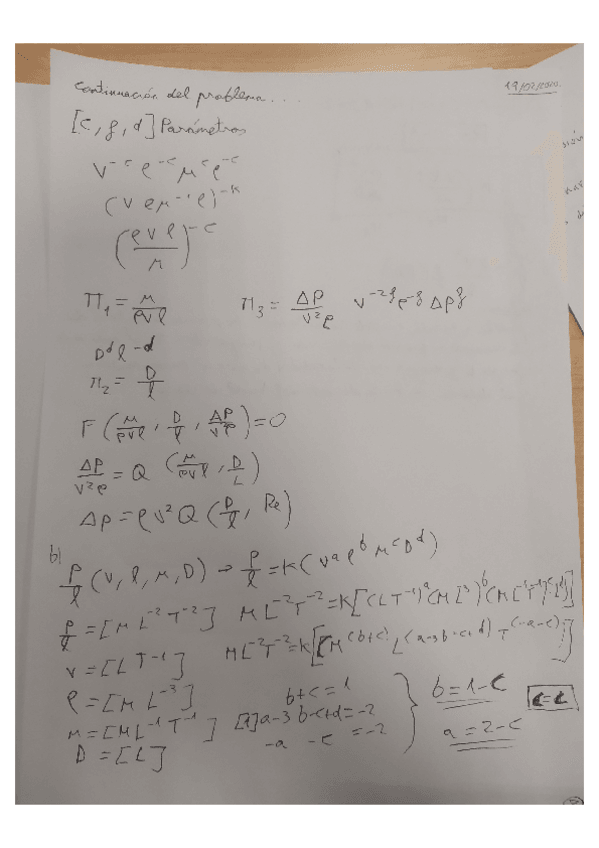 Continuación del problema...
[c, f, d] Parámetros
V^-c ρ^-c μ^c ℓ^-c
(V ρ μ^-1 ℓ)^-k
(ρvℓ/μ)^-c
Π1 = μ/ρvℓ    Π3 = ΔP/V²ρ    V^-2f ρ^-f ΔP^f
D^d ℓ^-d
Π2 = D/ℓ
F(μ/ρvℓ, D/ℓ, ΔP/V²ρ) = 0
ΔP/V²ρ = Q (μ/ρvℓ, D/L)
ΔP = ρv²Q (D/ℓ, Re)
b)
P/ℓ (V, ρ, μ, D) → P/ℓ = K(V^a ρ^b μ^c D^d)
P/ℓ = [M L^-2 T^-2]    M L^-2 T^-2 = K[(LT^-1)^a (ML^-3)^b (ML^-1T^-1)^c (L)^d]
V = [L T^-1]    ML^-2T^-2 = K[M^(b+c) L^(a-3b-c+d) T^(-a-c)]
ρ = [M L^-3]    b+c = 1    b = 1-c    c=c
μ = [ML^-1 T^-1]    [1] a-3b-c+d = -2    a = 2-c
D = [L]    -a -c = -2